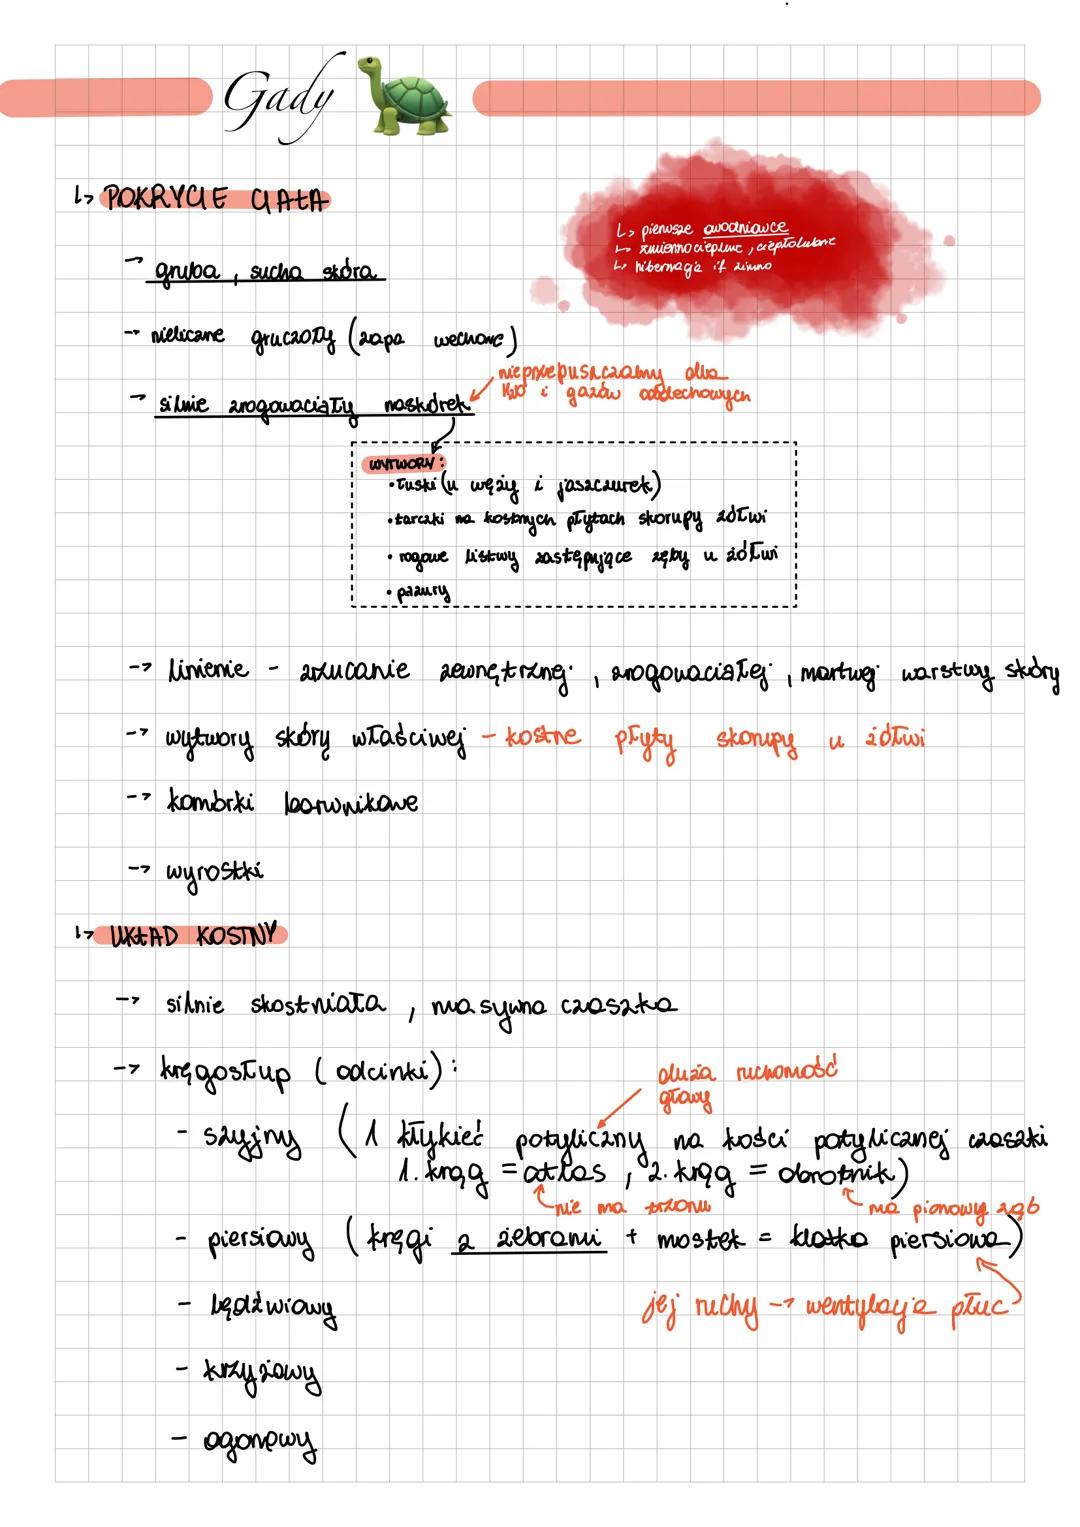 Gady
↳ POKRYCIE CIAŁA
↳ pierwsze owodniowce
↳ zmiennocieplne, ciepłolubne
↳ hibernacja if zimno
→ gruba, sucha skóra
→ nieliczne gruczoły (zapa wechowe)
nieprzepuszczalny dla
H₂O i gazów oddechowych
→ silnie zrogowaciały naskórek
WYTWORY:
•łuski (u węży i jaszczurek)
•tarczki na kostnych płytach skorupy żółwi
•rogowe listwy zastępujące zęby u żółwi
•pazury
→ linienie - zrzucanie zewnętrznej, zrogowaciałej, martwej warstwy skóry
→ wytwory skóry właściwej - kostne płyty skorupy u żółwi
→ komórki barwnikowe
→ wyrostki
↳ UKŁAD KOSTNY
→ silnie skostniała, masywna czaszka
→ kręgosłup (odcinki):
duża ruchomość
głowy
- szyjny (1 kłykieć potyliczny na kości potylicznej czaszki
1. kręg = atlas, 2. kręg = obrotnik)
nie ma trzonu
ma pionowy ząb
- piersiowy (kręgi z żebrami + mostek = klatka piersiowa)
- lędźwiowy
jej ruchy → wentylacja płuc
- krzyżowy
- ogonowy